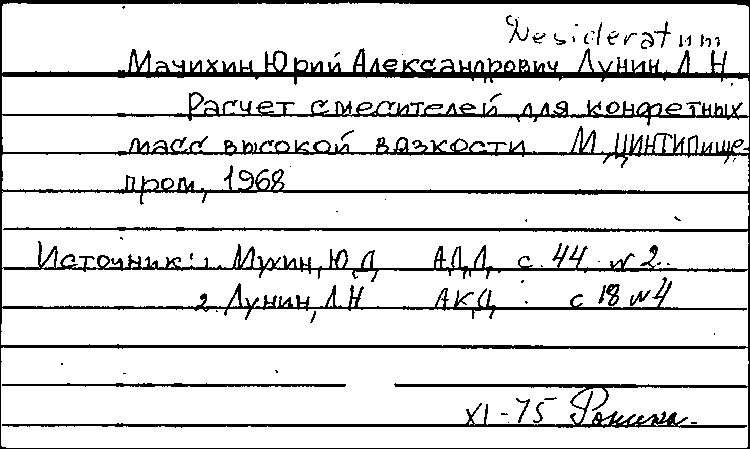 Desideratum
Мачихин, Юрий Александрович, Лунин, Л.Н.
Расчет смесителей для конфетных
масс высокой вязкости. М., ЦИНТИПище-
пром, 1968
Источник: 1. Мухин, Ю.Д. А.Д.Д. с. 44. № 2.
2. Лунин, Л.Н. А.К.Д. с 18 № 4
XI-75 Ронина